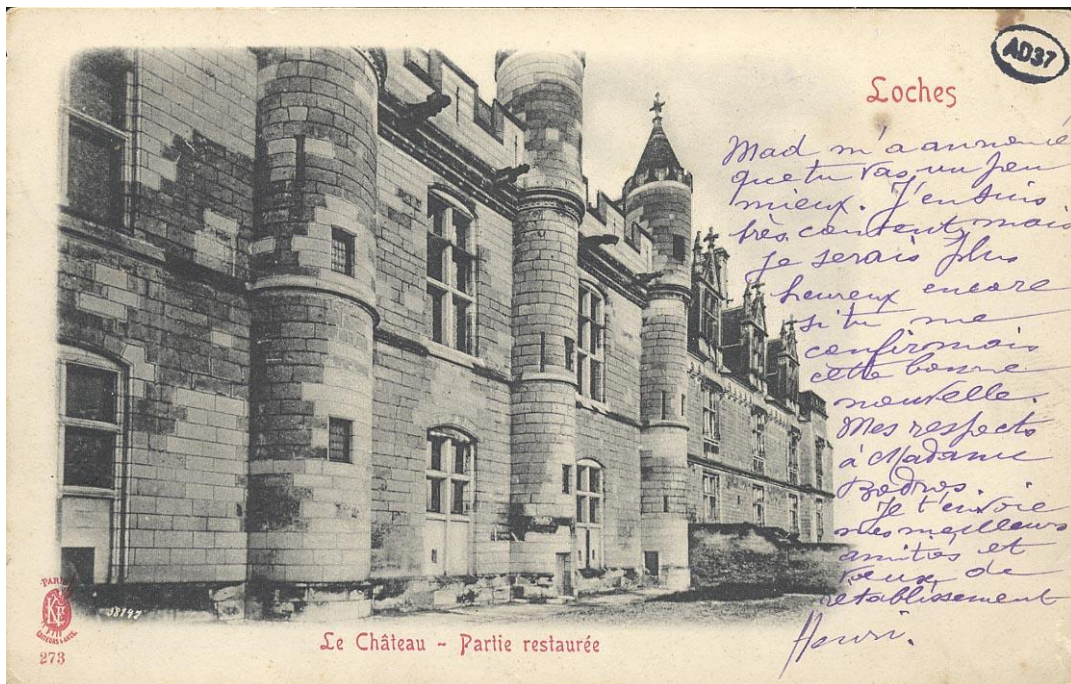 AD37
Loches
Mad m'a annoncé
que tu vas un peu
mieux. J'en suis
très content, mais
je serais plus
heureux encore
si tu me
confirmais
cette bonne
nouvelle.
Mes respects
à Madame
Je t'envoie
mes meilleurs
amitiés et
vœux de
rétablissement
Henri.
PARIS
58147
273
Le Château - Partie restaurée